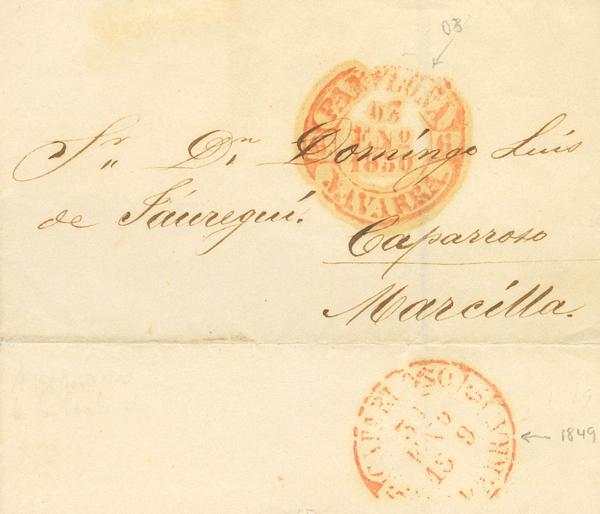 D3
PAMPLONA
ENO
1850
NAVARRA.
Sr. Dn. Domingo Luis
de Jáuregui.
Caparroso
Marcilla.
1849